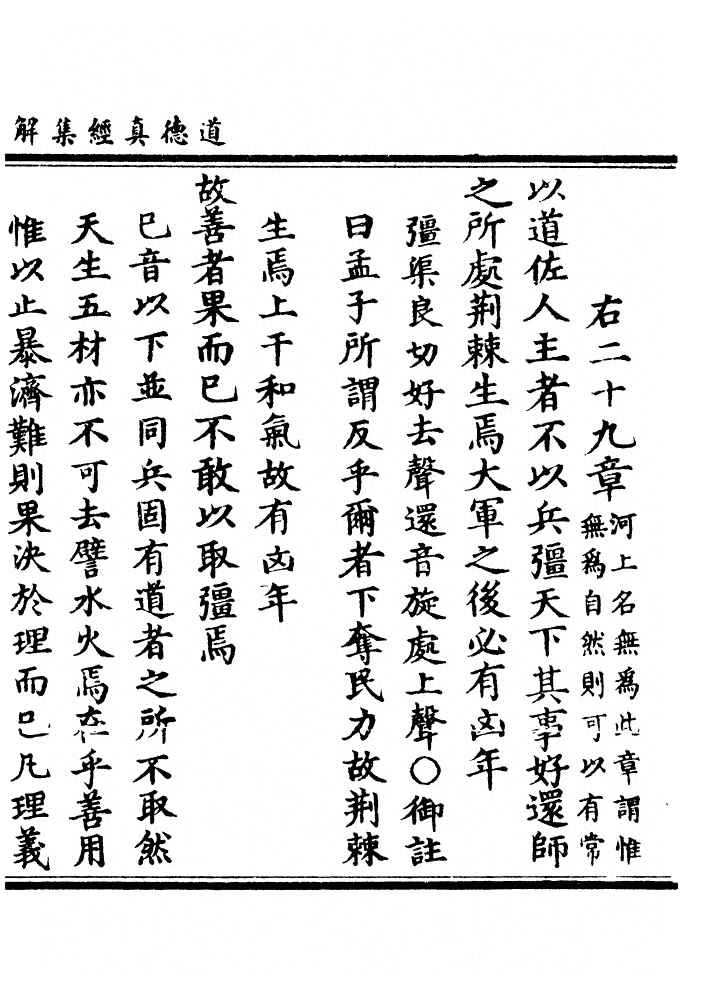 道德真經集解
右二十九章河上名無為此章謂惟
無為自然則可以有常
以道佐人主者不以兵彊天下其事好還師
之所處荆棘生焉大軍之後必有凶年
彊渠良切好去聲還音旋處上聲〇御註
曰孟子所謂反乎爾者下奪民力故荆棘
生焉上干和氣故有凶年
故善者果而已不敢以取彊焉
已音以下並同兵固有道者之所不取然
天生五材亦不可去譬水火焉在乎善用
惟以止暴濟難則果決於理而已凡理義